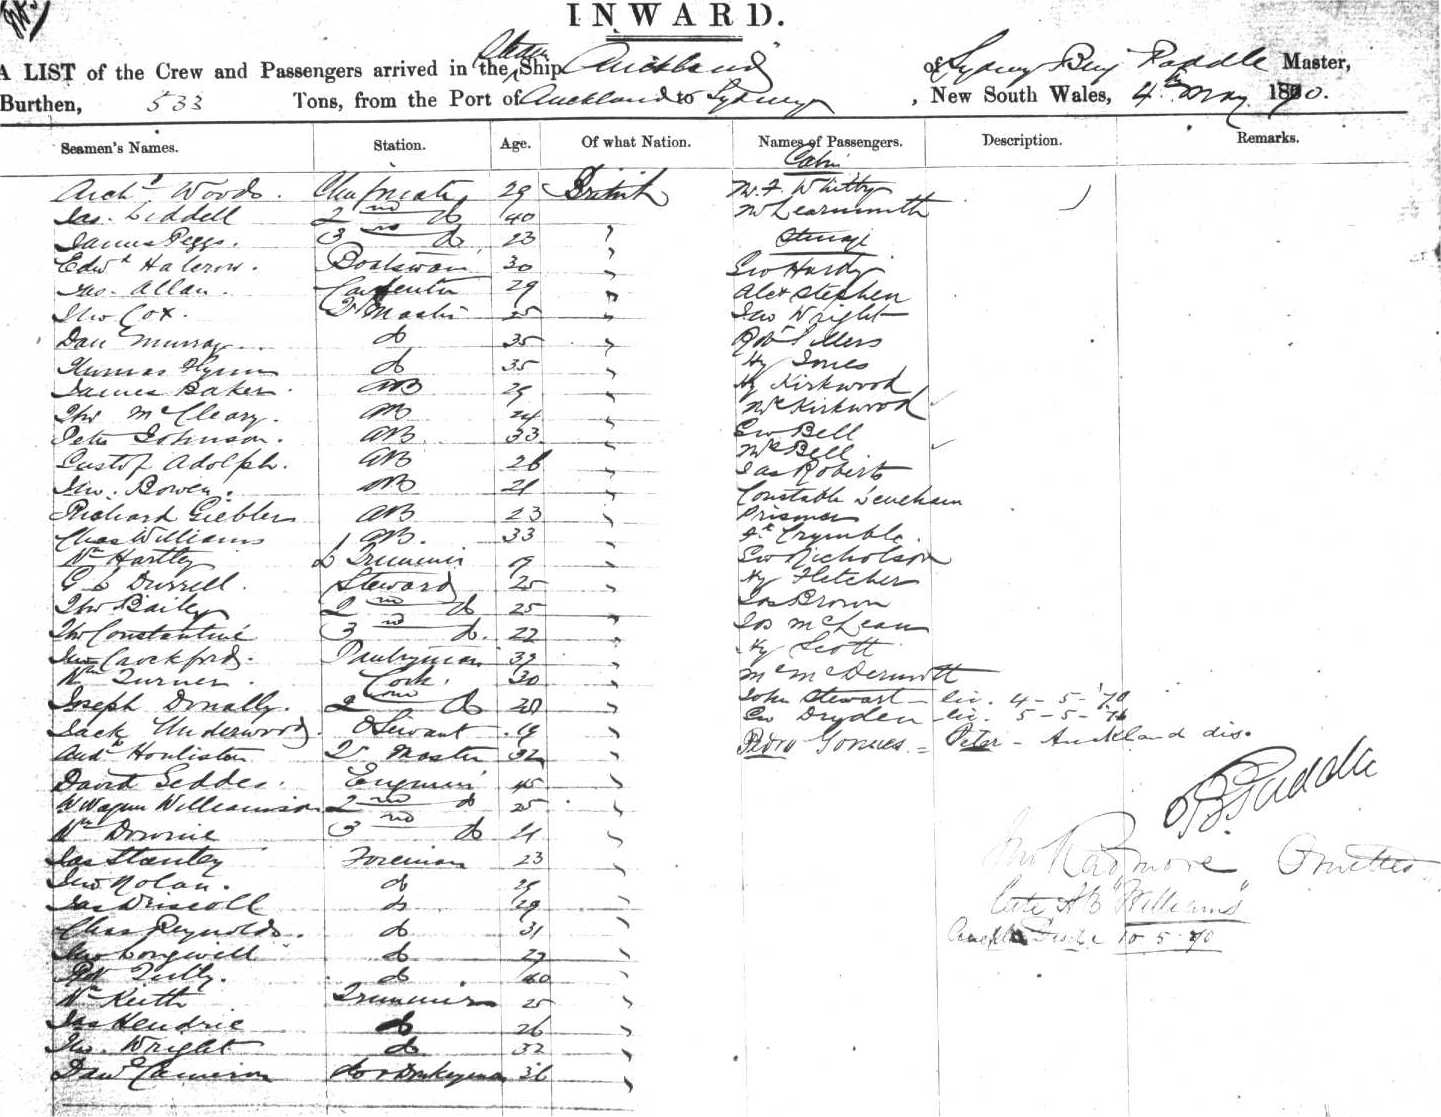 INWARD.
A LIST of the Crew and Passengers arrived in the Steam Ship Auckland of Sydney Master,
Burthen, 533 Tons, from the Port of Auckland to Sydney, New South Wales, 4th May 1870.
Seamen's Names. Station. Age. Of what Nation. Names of Passengers. Description. Remarks.
Cabin
Archd Woods. Chief mate 29 British Mr. Whitby
Jas. Liddell 2nd do 40 Mr Learmonth
James Peggs. 3rd do 23 " Steerage
Edwd Halcrow. Boatswain 30 " Geo Hardy
Jno. Allan. Carpenter 29 " Alex Stephen
Jno Cox. 25 " Jno Wright
Dan Murray do 35 " Robt
Thomas Flynn do 35 " Hy Jones
James Baker. AB 29 " Hy Kirkwood
Jno McCleary. AB 24 " Mrs Kirkwood
Peter Johnson. AB 33 " Geo Bell
Gustof Adolph. AB 26 " Mrs Bell
Jno. Bowen. AB 21 " Jas Roberts
Richard Giebler AB 23 " Constable Leneham
Chas Williams AB. 33 " Prisoner
Wm Hartley Trimmer 19 " Crymble.
Durrell. Steward 25 " Geo Nicholson
Jno Bailey 2nd do 25 " Hy Fletcher
Jno Constantine 3rd do. 22 " Jos Brown
Jno Crockford. Pantryman 39 " Jos McLean
Wm Turner. Cook. 30 " Hy Scott
Joseph Donally. 2nd do 20 " McDermott
Jack Underwood. Servant 19 " John Stewart - 4-5-'70
Andw Houliston 32 " Geo Dryden 5-5-'70
David Geddes. Engineer 45 " Pedro Gomes = Peter - Auckland dis.
W Wagner Williamson 2nd do 25 "
Wm Downie 3rd do 21 "
Jas Stanley Foreman 23 "
Jno Nolan. do 29 "
Jas Driscoll do 29 "
Chas Reynolds. do 31 "
Jno Longwill do 27 "
Robt Tully. do 40 "
Wm Keith Trimmer 25 "
Jas Hendrie do 26 "
Jno. Wright do 32 "
Davd Cameron do & Donkeyman 36 "
Jno Radmore
late AB "Williams"
10-5-70